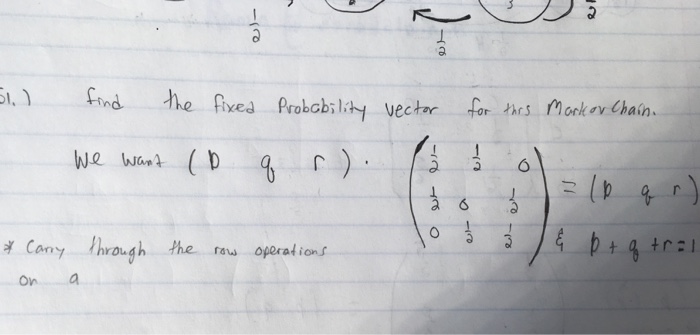 1/2 3 1/2
1/2
51.) find the fixed Probability vector for this Markov Chain.
We want (p q r) · (1/2 1/2 0
1/2 0 1/2
0 1/2 1/2) = (p q r)
& p + q + r = 1
* Carry through the row operations
on a